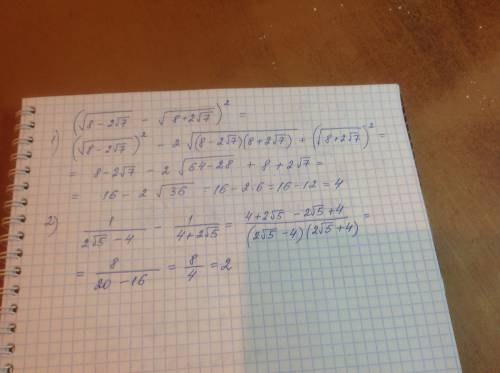 (√(8-2√7) - √(8+2√7))² =
1) (√(8-2√7))² - 2√((8-2√7)(8+2√7)) + (√(8+2√7))² =
= 8-2√7 - 2√(64-28) + 8+2√7 =
= 16-2√36 = 16-2·6=16-12=4
2) 1/(2√5-4) - 1/(4+2√5) = (4+2√5-2√5+4)/((2√5-4)(2√5+4)) =
= 8/(20-16) = 8/4 = 2